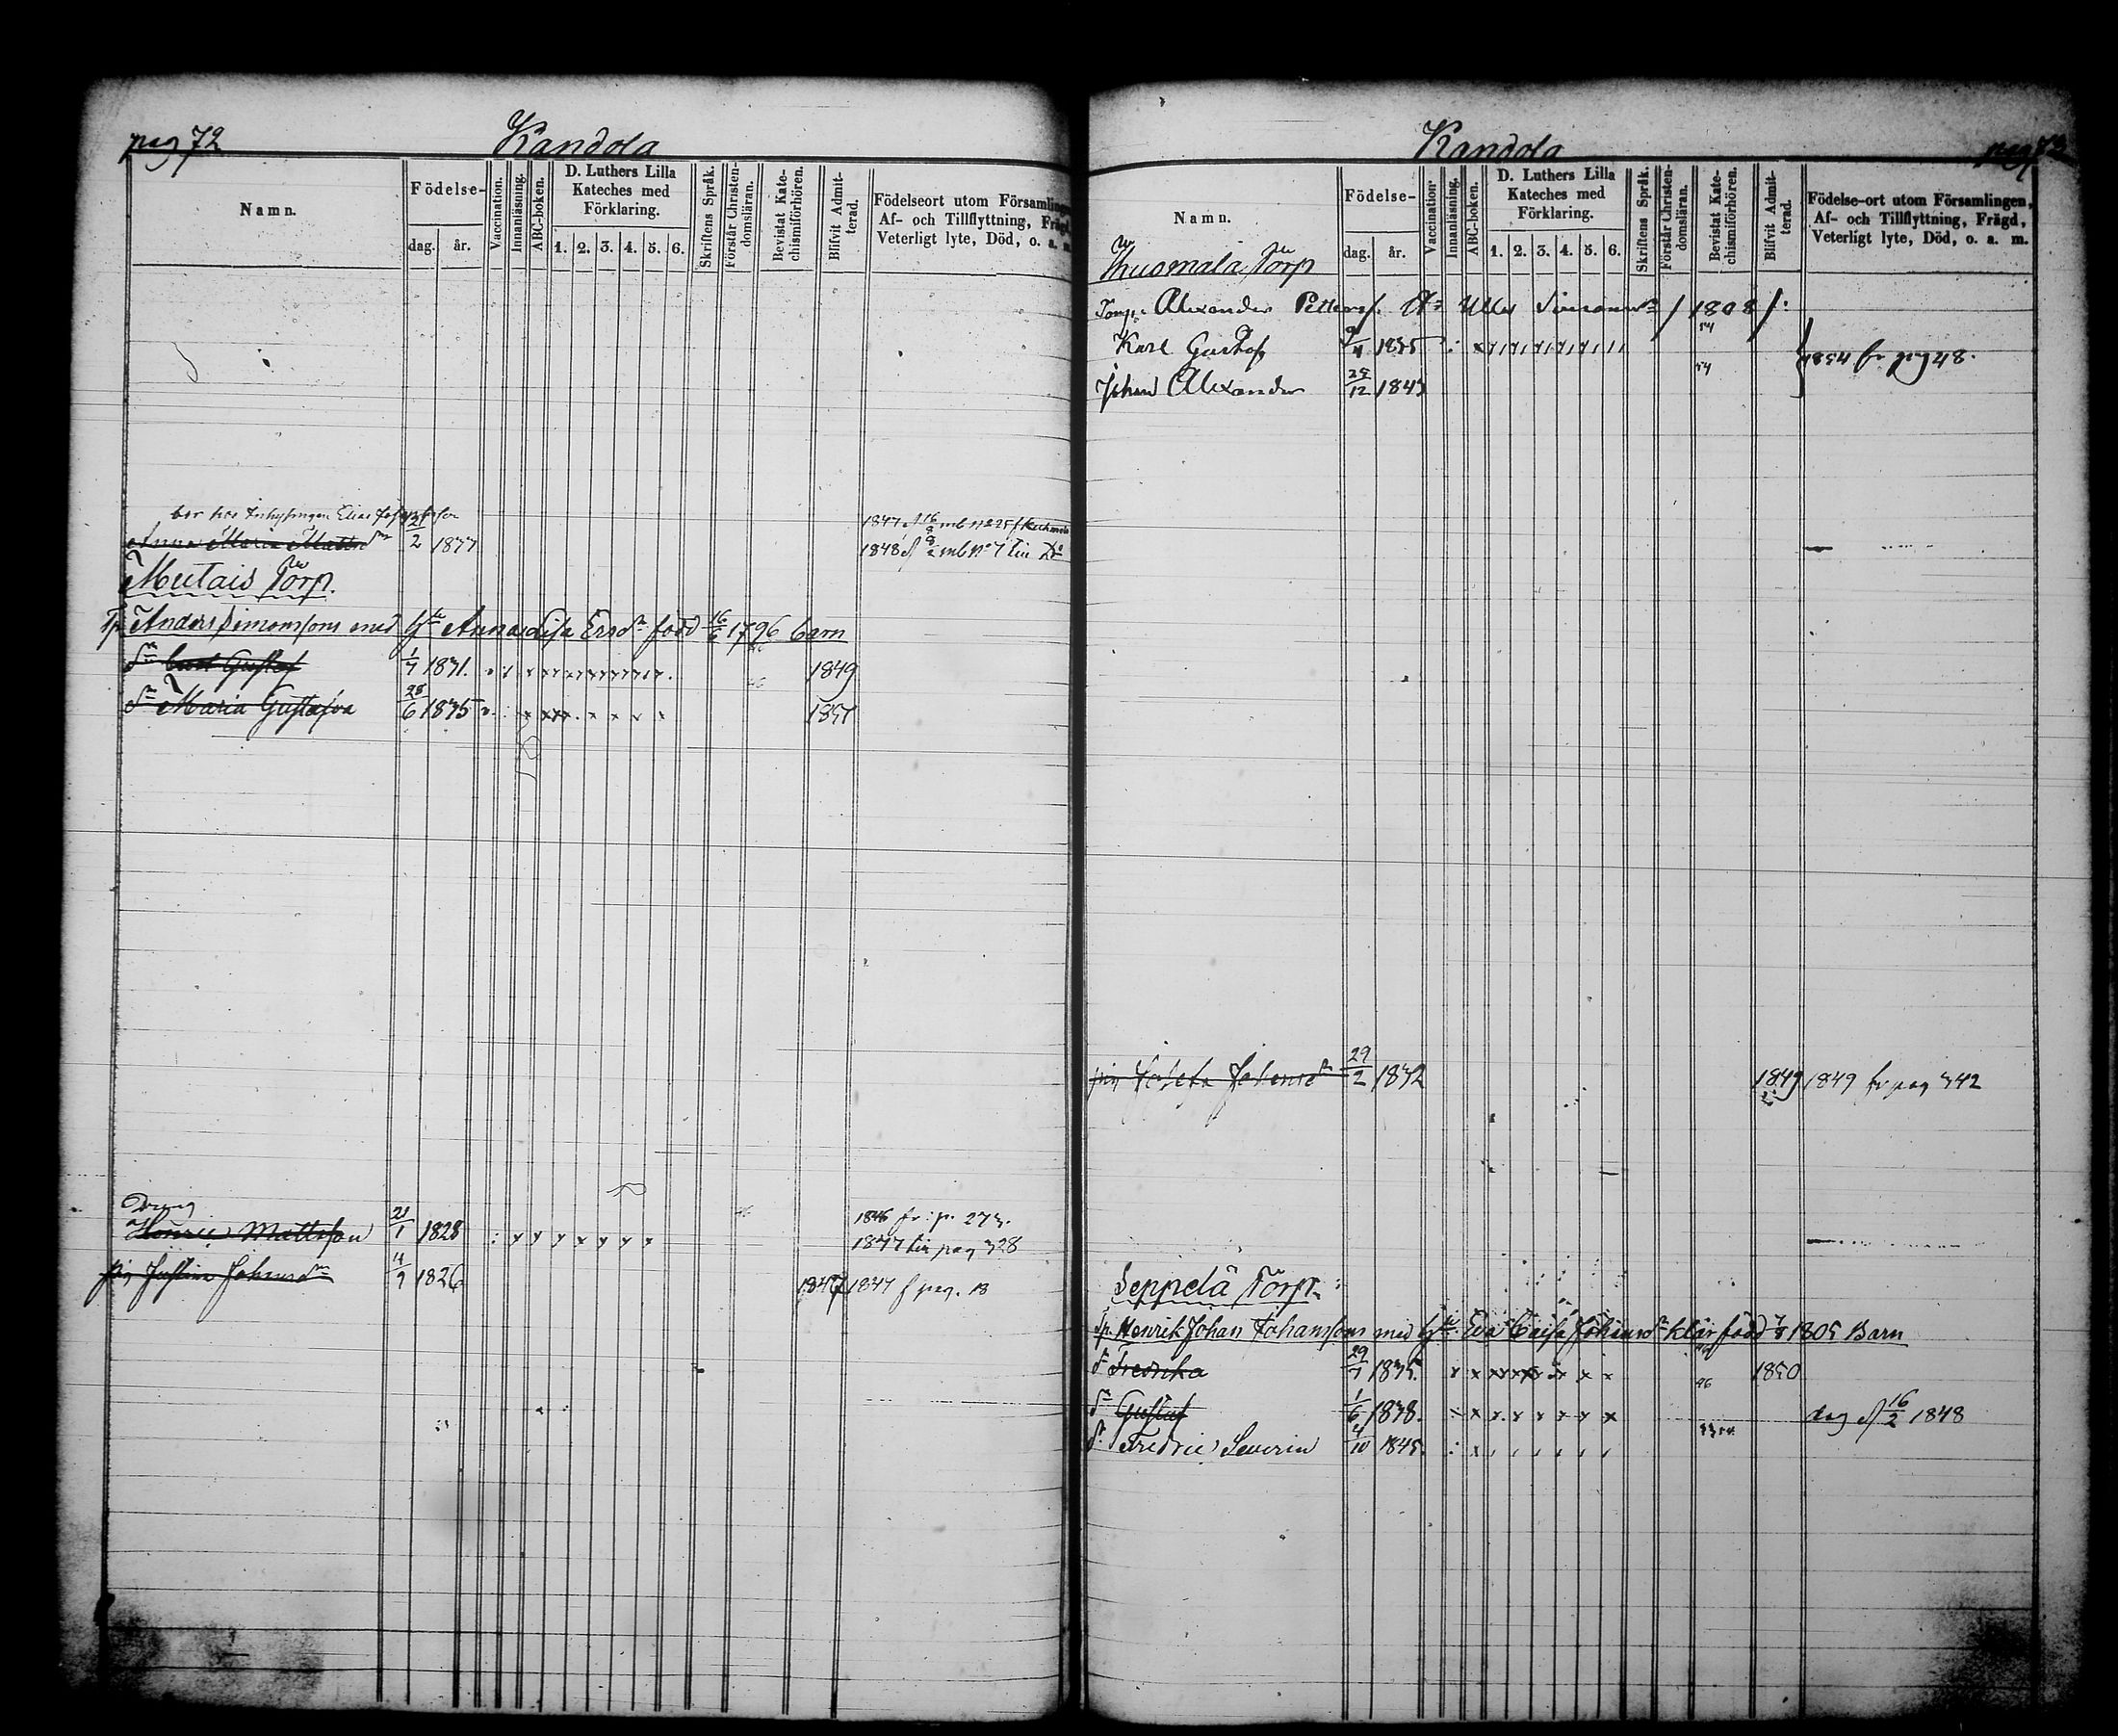 pag 72 Kandola
Namn. Födelse- dag. år. Vaccination. Innanläsning. ABC-boken. D. Luthers Lilla Kateches med Förklaring. 1. 2. 3. 4. 5. 6. Skriftens Språk. Förstår Christen-domsläran. Bevistat Kate-chismiförhören. Blifvit Admit-terad. Födelseort utom Församlingen, Af- och Tillflyttning, Frägd, Veterligt lyte, Död, o. a. m.
bor hos Inhysingen Elias
Anna Maria Mattsdr 2 18 1848 mb No 7 till Do
Mutais Torp.
Anders Simonsons med Hu Anna Lisa Ersdr född 16/6 1796 barn
Sn Carl Gustaf 1/7 1831. 1849
Dr Maria Gustafva 28/6 1835 1851
Dreng
Henric Mattsson 21/1 1828 1846 fr: p. 273.
1847 till pag 328
pig Justina Johansdr 4/9 1826 1847 1847 f pag. 13
Kandola pag 73
Namn. Födelse- dag. år. Vaccination. Innanläsning. ABC-boken. D. Luthers Lilla Kateches med Förklaring. 1. 2. 3. 4. 5. 6. Skriftens Språk. Förstår Christen-domsläran. Bevistat Kate-chismiförhören. Blifvit Admit-terad. Födelse-ort utom Församlingen, Af- och Tillflyttning, Frägd, Veterligt lyte, Död, o. a. m.
Torp
Alexander Petterss. Ulla Simonsdr /1808/:
Karl Gustaf 1835 54
Johan Alexander 25/12 1843 54 1854 fr pag 48.
pig Johansdr 29/2 1832 1849 1849 fr pag 342
Seppelä Torp.
Tp. Henrik Johan Johanssons med Hu: Eva Caisa Johansdr född 1805 Barn
dr Fredrika 29/7 1835. 46 1850
Sn Gustaf 1/6 1838. 46 dog d 16/2 1848
Sn Fredric Severin 4/10 1845.